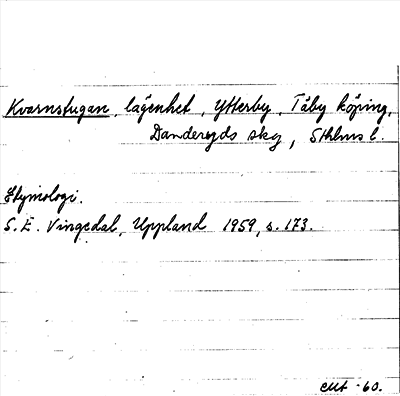 Kvarnstugan, lägenhet, Ytterby, Täby köping,
Danderyds skg, Sthlms l.
Etymologi.
S. E. Vingedal, Uppland 1959, s. 173.
-60.